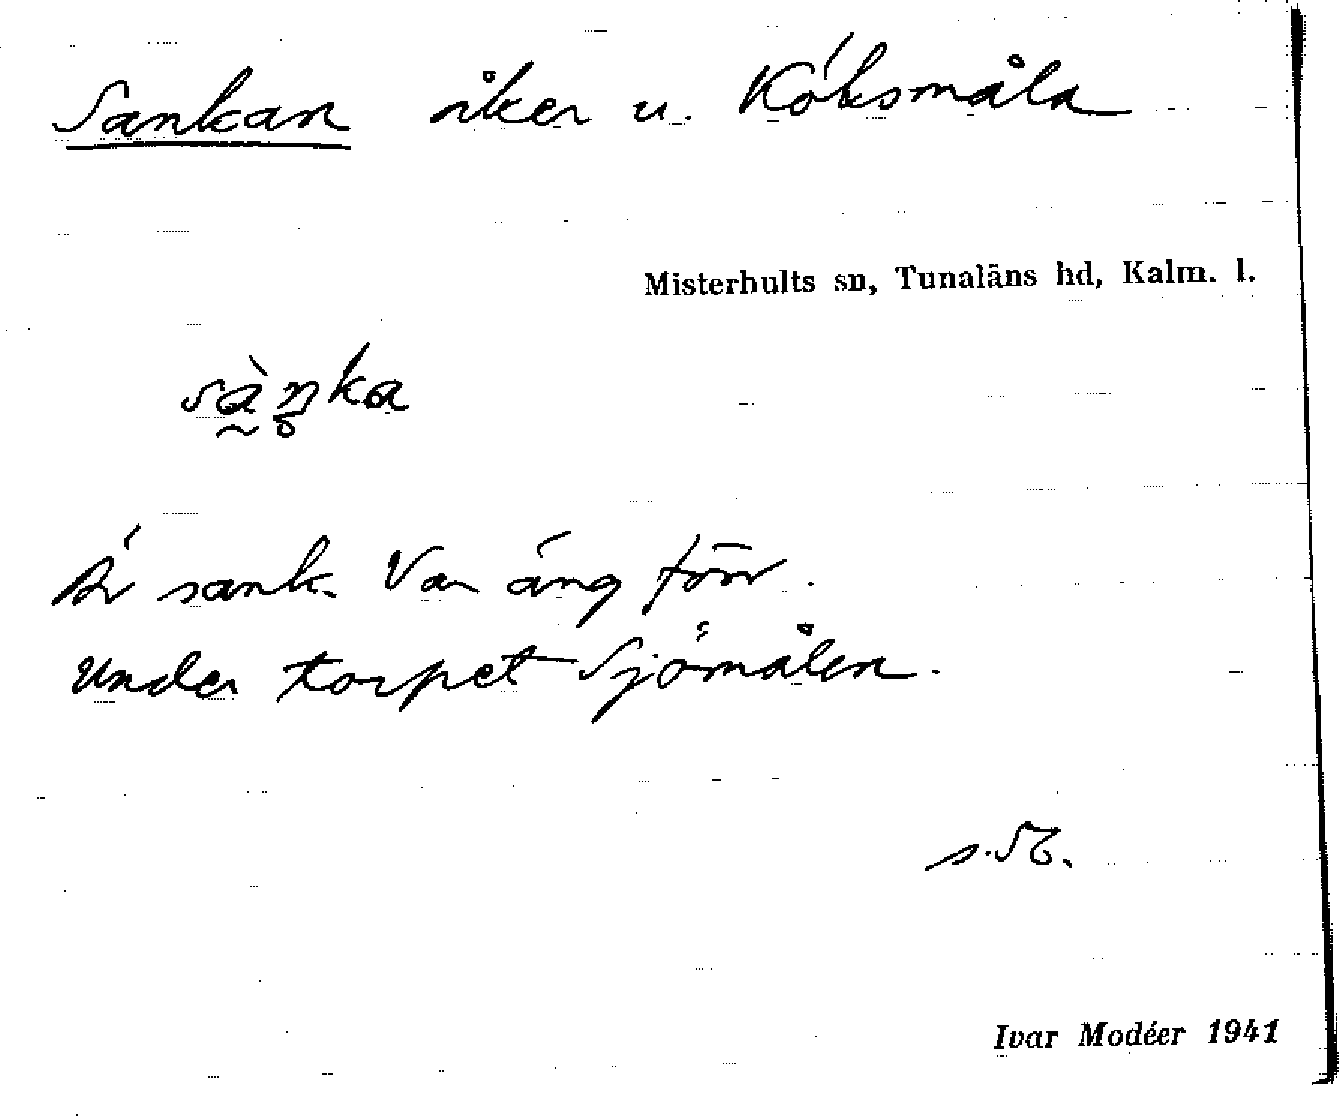 Sankan åker u. Köksmåla
Misterhults sn, Tunaläns hd, Kalm. l.
sàŋka
Är sank. Var äng förr.
Under torpet Sjömålen.
Ivar Modéer 1941